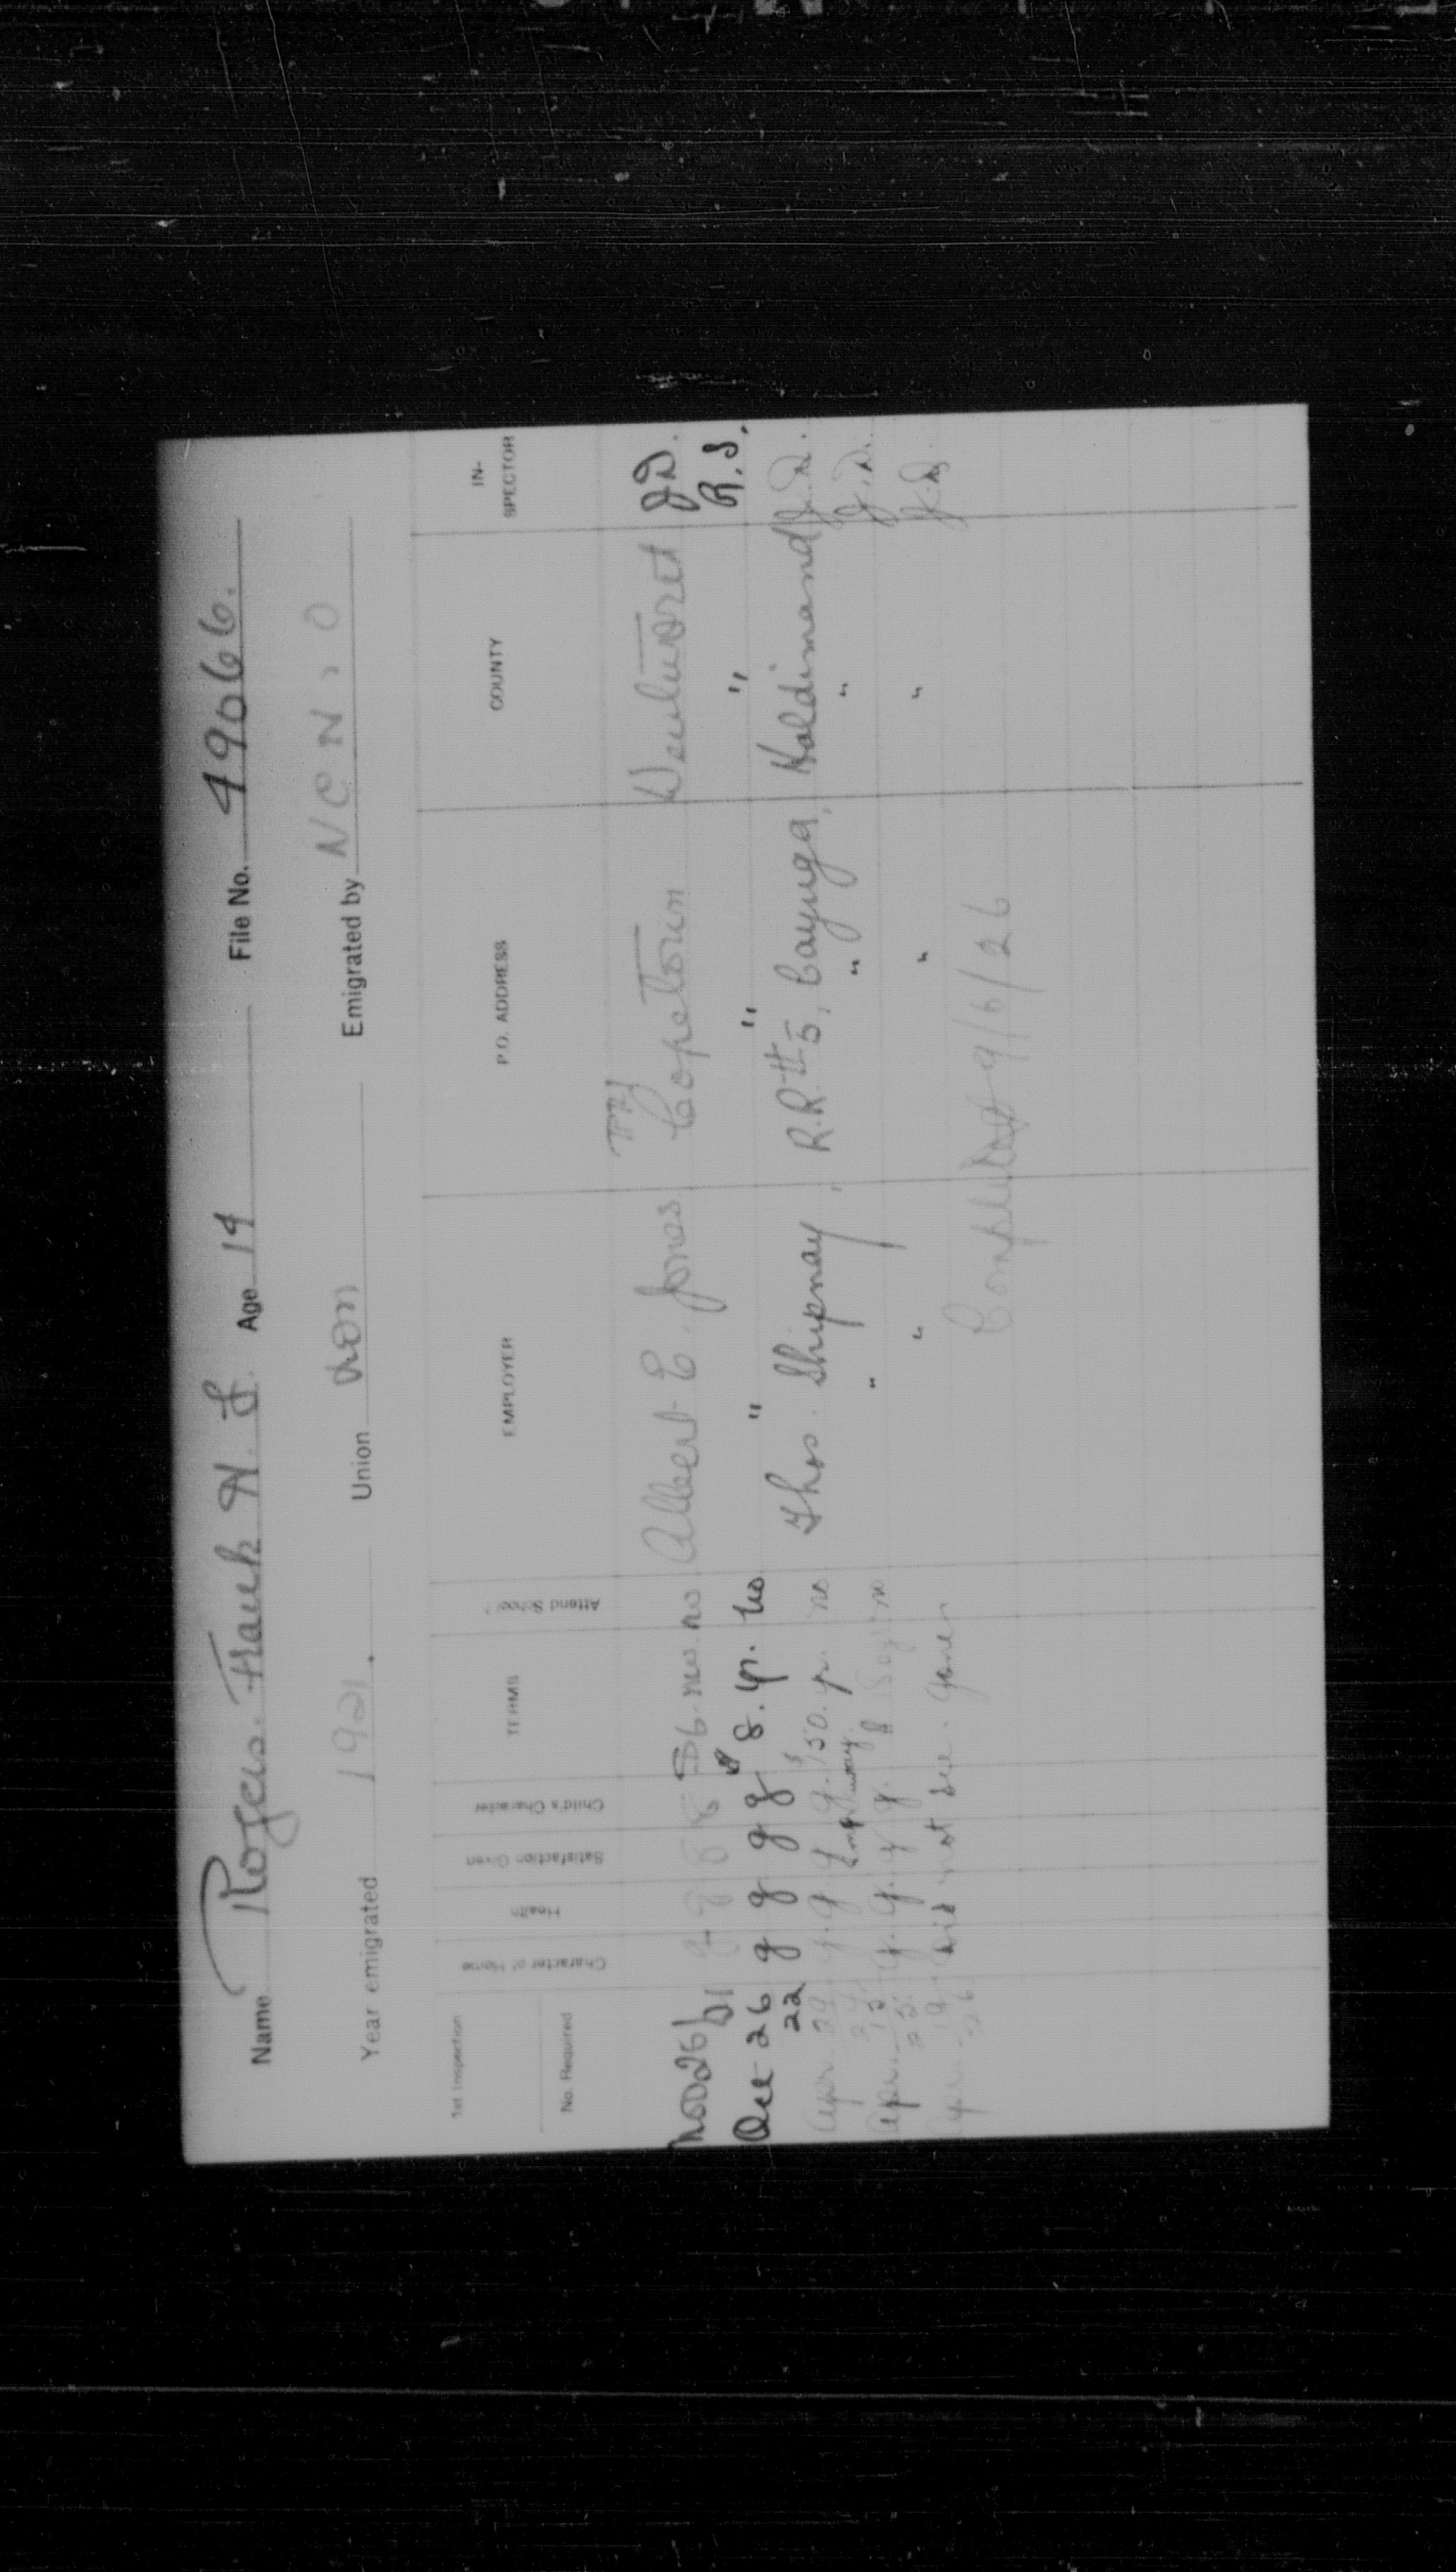 Name Rogers. Frank N. F. Age 14 File No. 49066.
Year emigrated 1921. Union non Emigrated by N C H , O
1st Inspection
No. Required
Character of Home
Health
Satisfaction Given
Child's Character
TERMS
Attend School?
EMPLOYER
P.O. ADDRESS
COUNTY
IN-SPECTOR
Nov 26/21 g g g g $6. mo. no Albert E. Jones Copetown Wentworth J.D.
Dec 26 22 g g g g $ 8. yr. no " " " R.S.
Apr. g. g g g. $150. yr. no Thos. Shipmay, R.R.#5, Cayuga, Haldimand J.D.
Apr. 13. 25. g. g. g g. no " " " J.D.
Apr. 19 26 did not see. Gone " " " J.D.
Completed 9/6/26